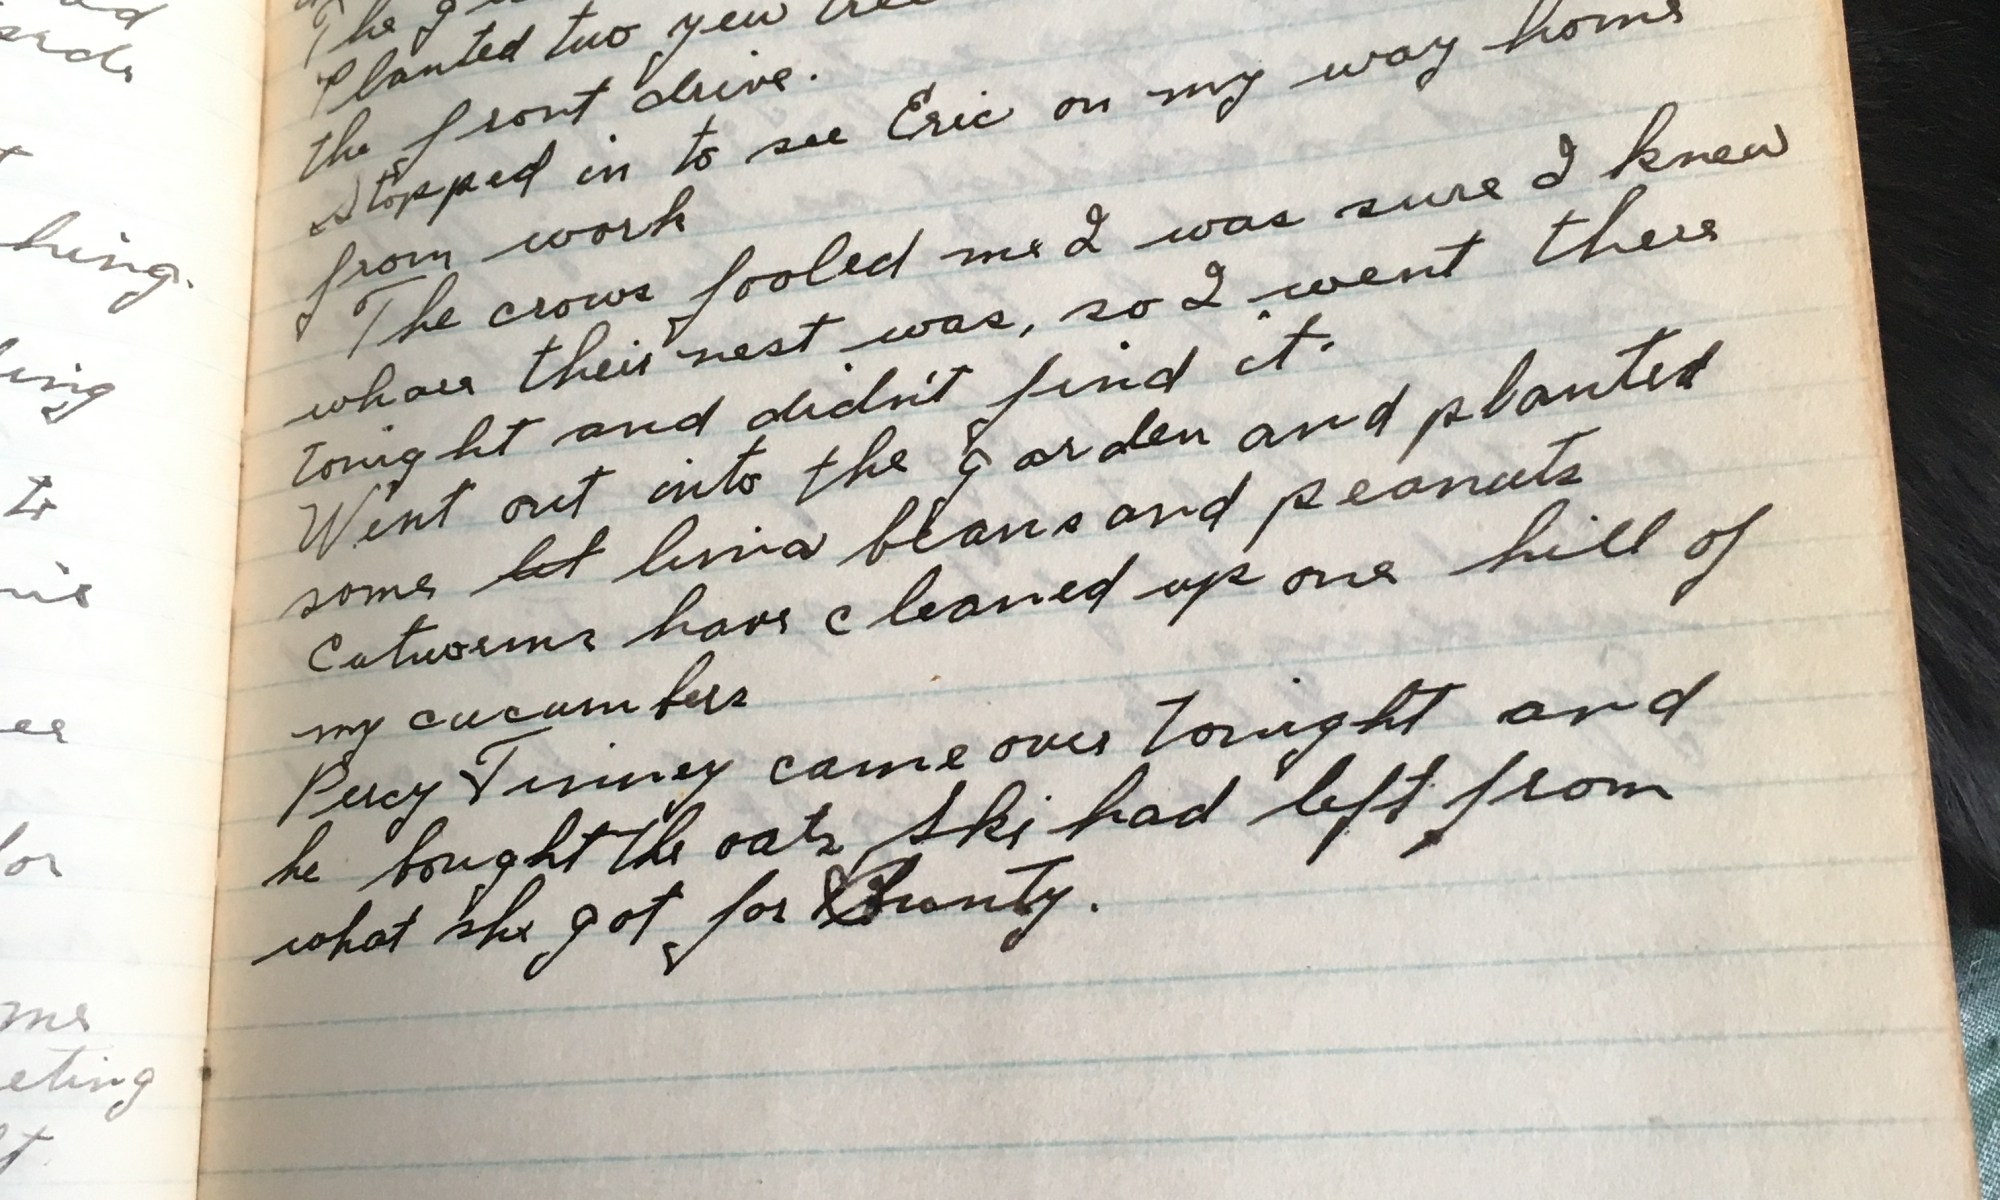 The
Planted two yew
the front drive.
Stopped in to see Eric on my way home
from work
The crows fooled me I was sure I knew
where their nest was, so I went there
tonight and didn't find it.
Went out into the garden and planted
some let lima beans and peanuts
Cutworms have cleaned up one hill of
my cucumbers
Percy Finney came over tonight and
he bought the oats Ski had left from
what she got for Bunty.
hing.
ing
to
or
me
eting